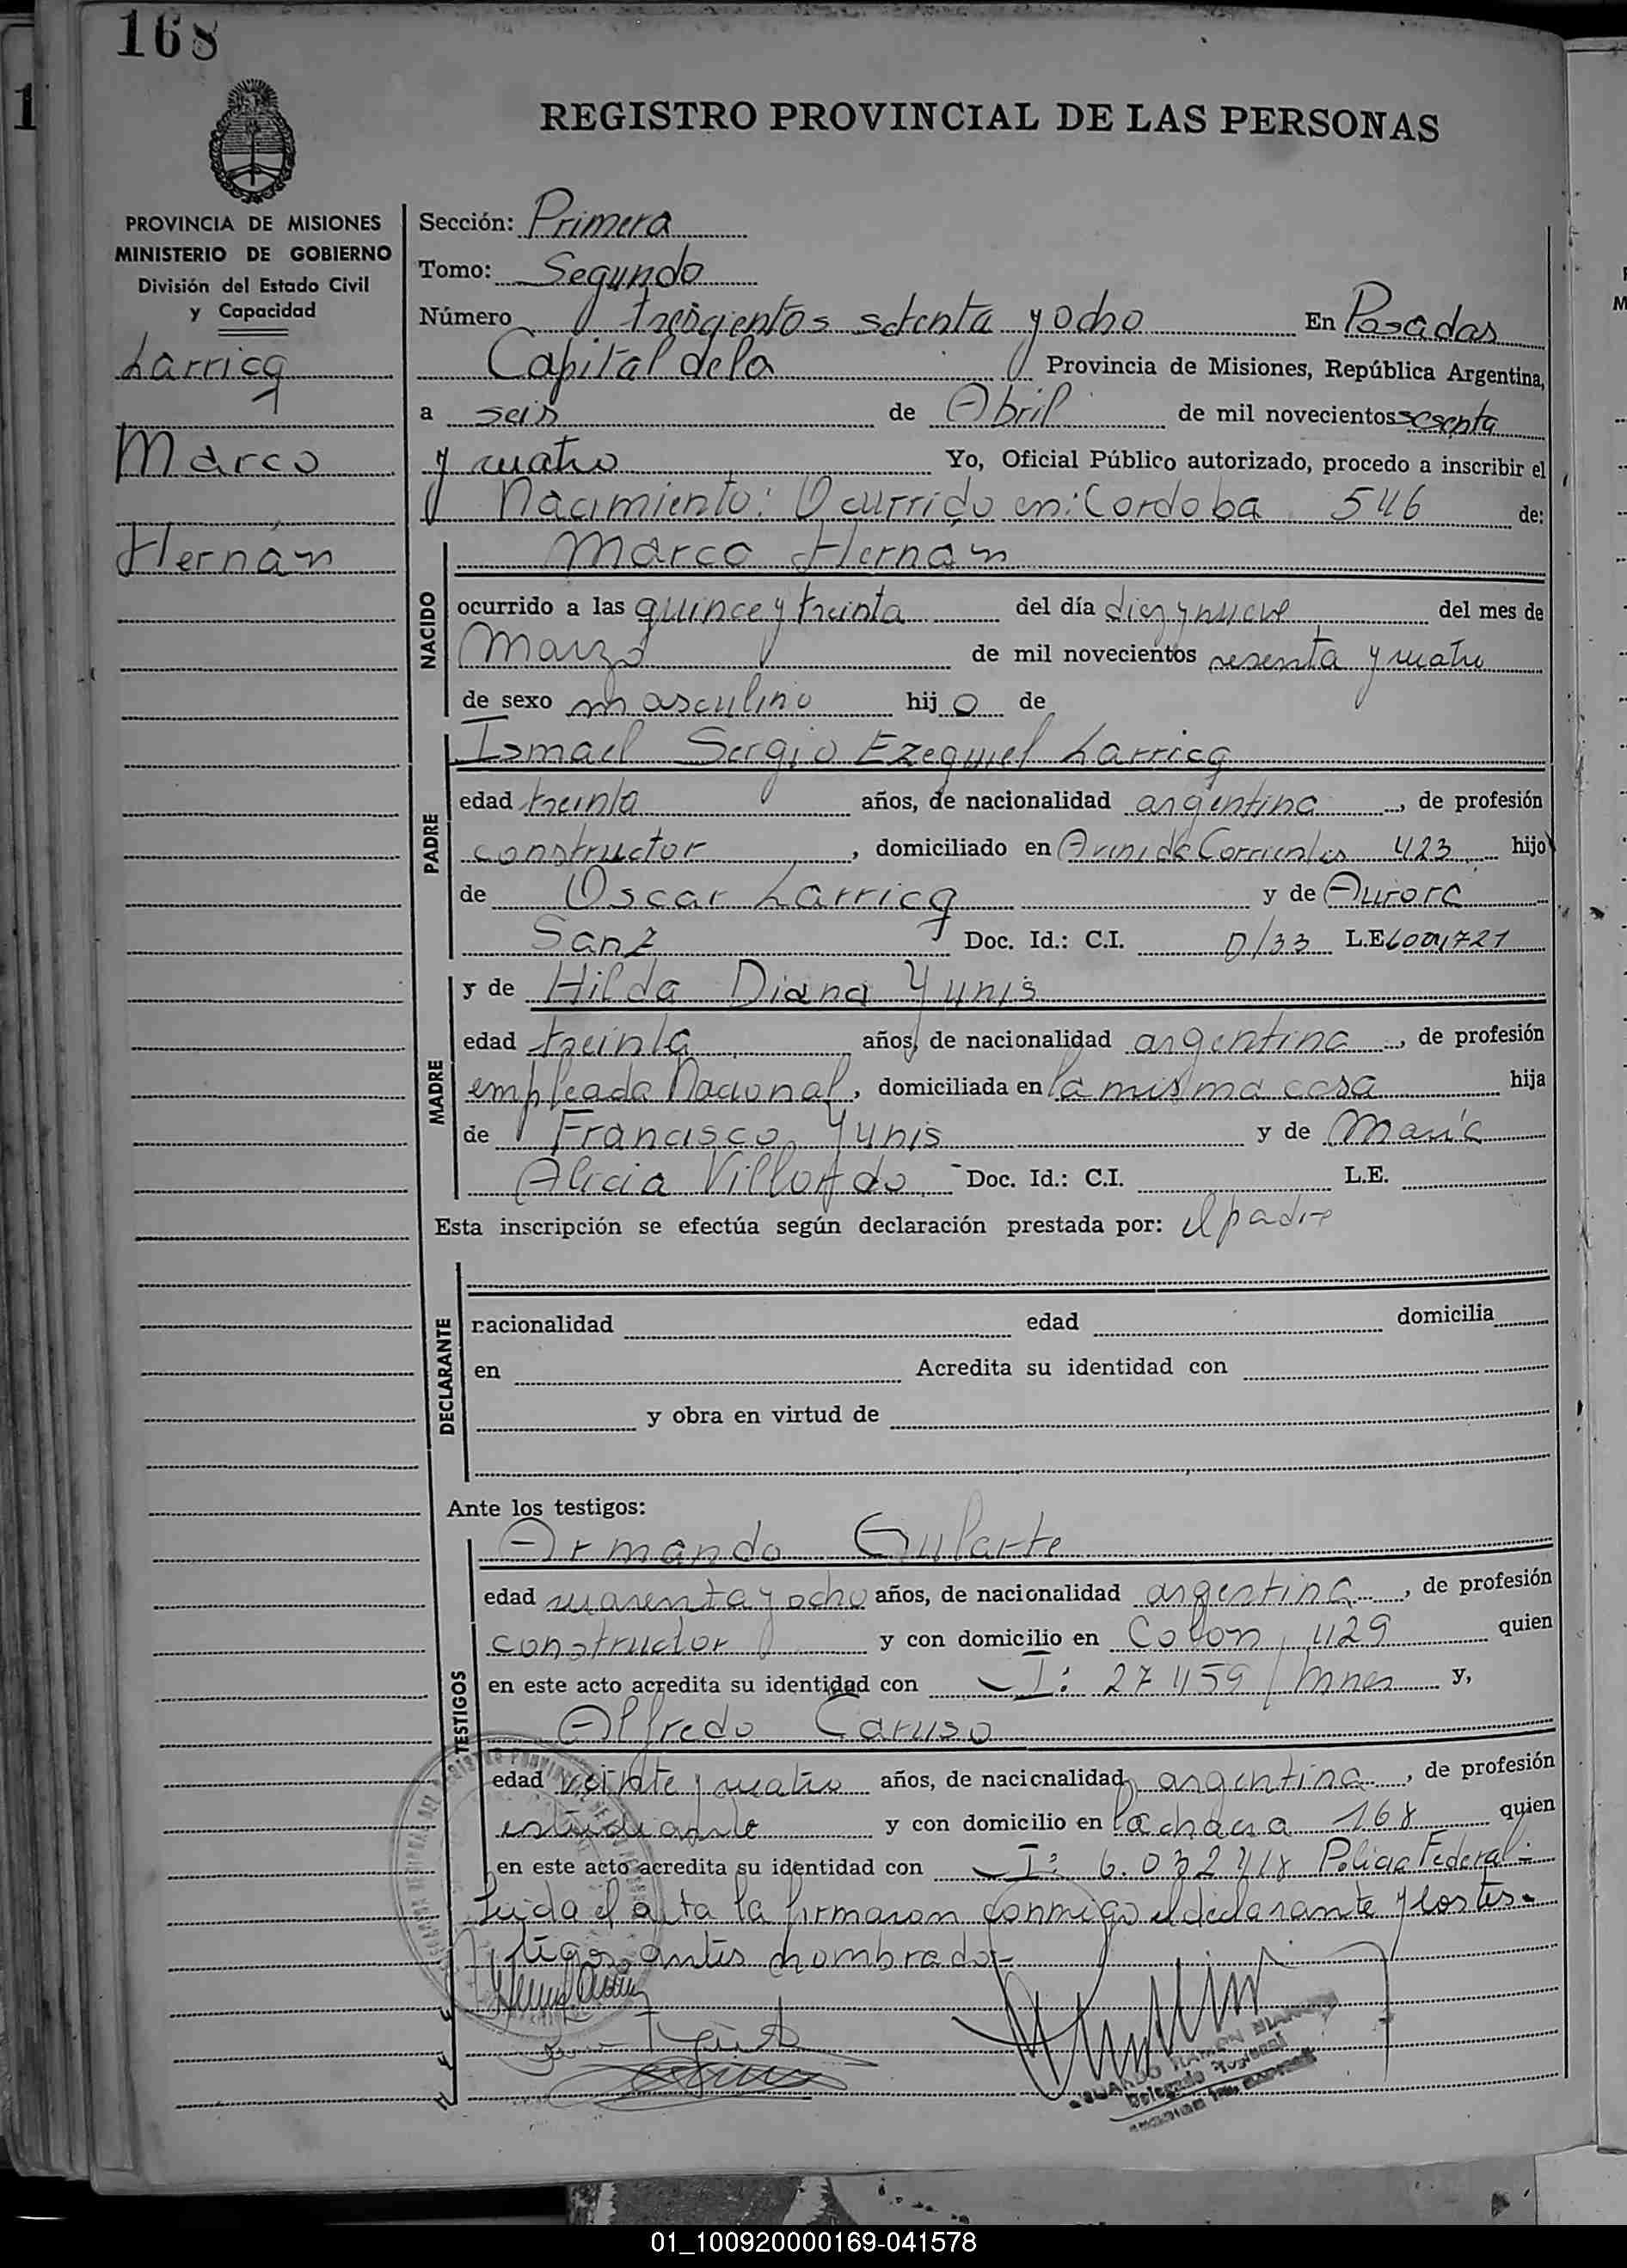 168
REGISTRO PROVINCIAL DE LAS PERSONAS
PROVINCIA DE MISIONES
MINISTERIO DE GOBIERNO
División del Estado Civil
y Capacidad
Larricq
Marco
Hernán
Sección: Primera
Tomo: Segundo
Número trescientos setenta y ocho En Posadas
Capital de la Provincia de Misiones, República Argentina,
a seis de Abril de mil novecientos sesenta
y cuatro Yo, Oficial Público autorizado, procedo a inscribir el
Nacimiento: Ocurrido en: Cordoba 546 de:
NACIDO
Marco Hernán
ocurrido a las quince y treinta del día diez y nueve del mes de
Marzo de mil novecientos sesenta y cuatro
de sexo masculino hijo de
PADRE
Ismael Sergio Ezequiel Larricq
edad treinta años, de nacionalidad argentina, de profesión
constructor, domiciliado en Avenida Corrientes 423 hijo
de Oscar Larricq y de Aurora
Sanz Doc. Id.: C.I. D/33 L.E.
MADRE
y de Hilda Diana Yunis
edad treinta años, de nacionalidad argentina, de profesión
empleada Nacional, domiciliada en la misma casa hija
de Francisco Yunis y de María
Alicia Doc. Id.: C.I. L.E.
Esta inscripción se efectúa según declaración prestada por: el padre
DECLARANTE
nacionalidad edad domicilia
en Acredita su identidad con
y obra en virtud de
Ante los testigos:
TESTIGOS
Armando Gularte
edad cuarenta y ocho años, de nacionalidad argentina, de profesión
constructor y con domicilio en Colon 429 quien
en este acto acredita su identidad con C.I: 27459/Mnes y,
Alfredo Caruso
edad veinte y cuatro años, de nacionalidad argentina, de profesión
estudiante y con domicilio en La chacra 168 quien
en este acto acredita su identidad con C.I: Policia Federal.-
Leida el acta la firmaron conmigo el declarante y los tes-
tigos antes nombrados-
Delegado Regional
01_100920000169-041578